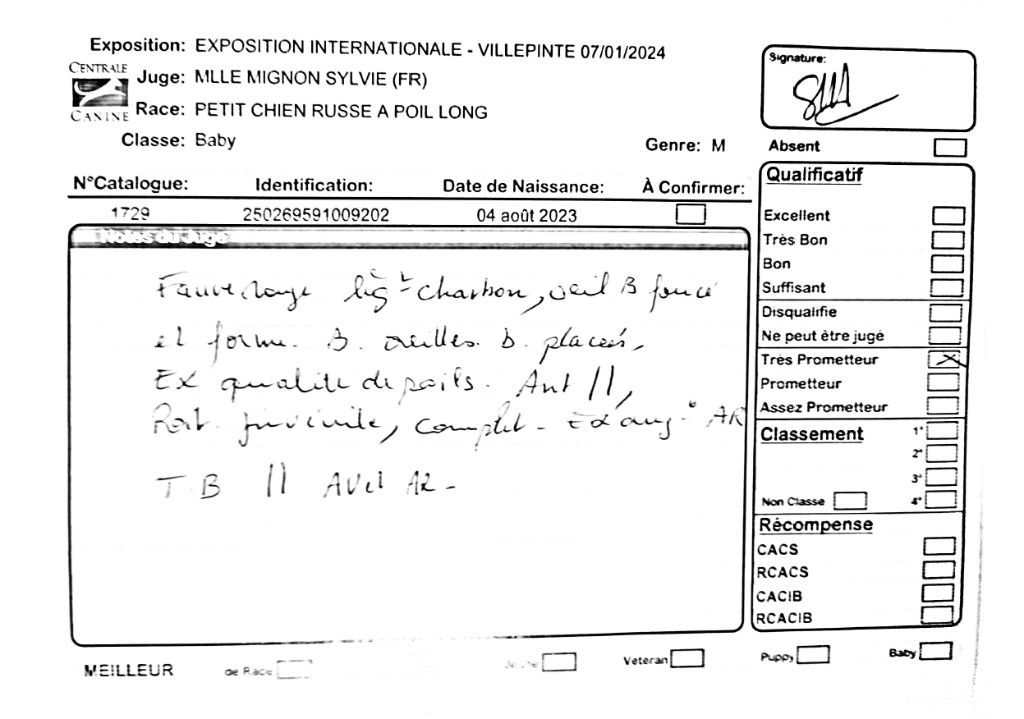 Exposition: EXPOSITION INTERNATIONALE - VILLEPINTE 07/01/2024
CENTRALE
CANINE
Juge: MLLE MIGNON SYLVIE (FR)
Race: PETIT CHIEN RUSSE A POIL LONG
Classe: Baby
Genre: M
Signature:
Absent
N°Catalogue: Identification: Date de Naissance: À Confirmer:
1729 250269591009202 04 août 2023
Notes du Juge
Fauve rouge charbon, oeil B foncé
et forme. B. oreilles. B. placées,
Ex qualité de poils. Ant //,
juvénile, complet - Ex ang° AR
T.B // AV et AR -
Qualificatif
Excellent
Très Bon
Bon
Suffisant
Disqualifie
Ne peut être jugé
Très Prometteur
Prometteur
Assez Prometteur
Classement 1°
2°
3°
Non Classe 4°
Récompense
CACS
RCACS
CACIB
RCACIB
MEILLEUR de Race Jeune Veteran Puppy Baby